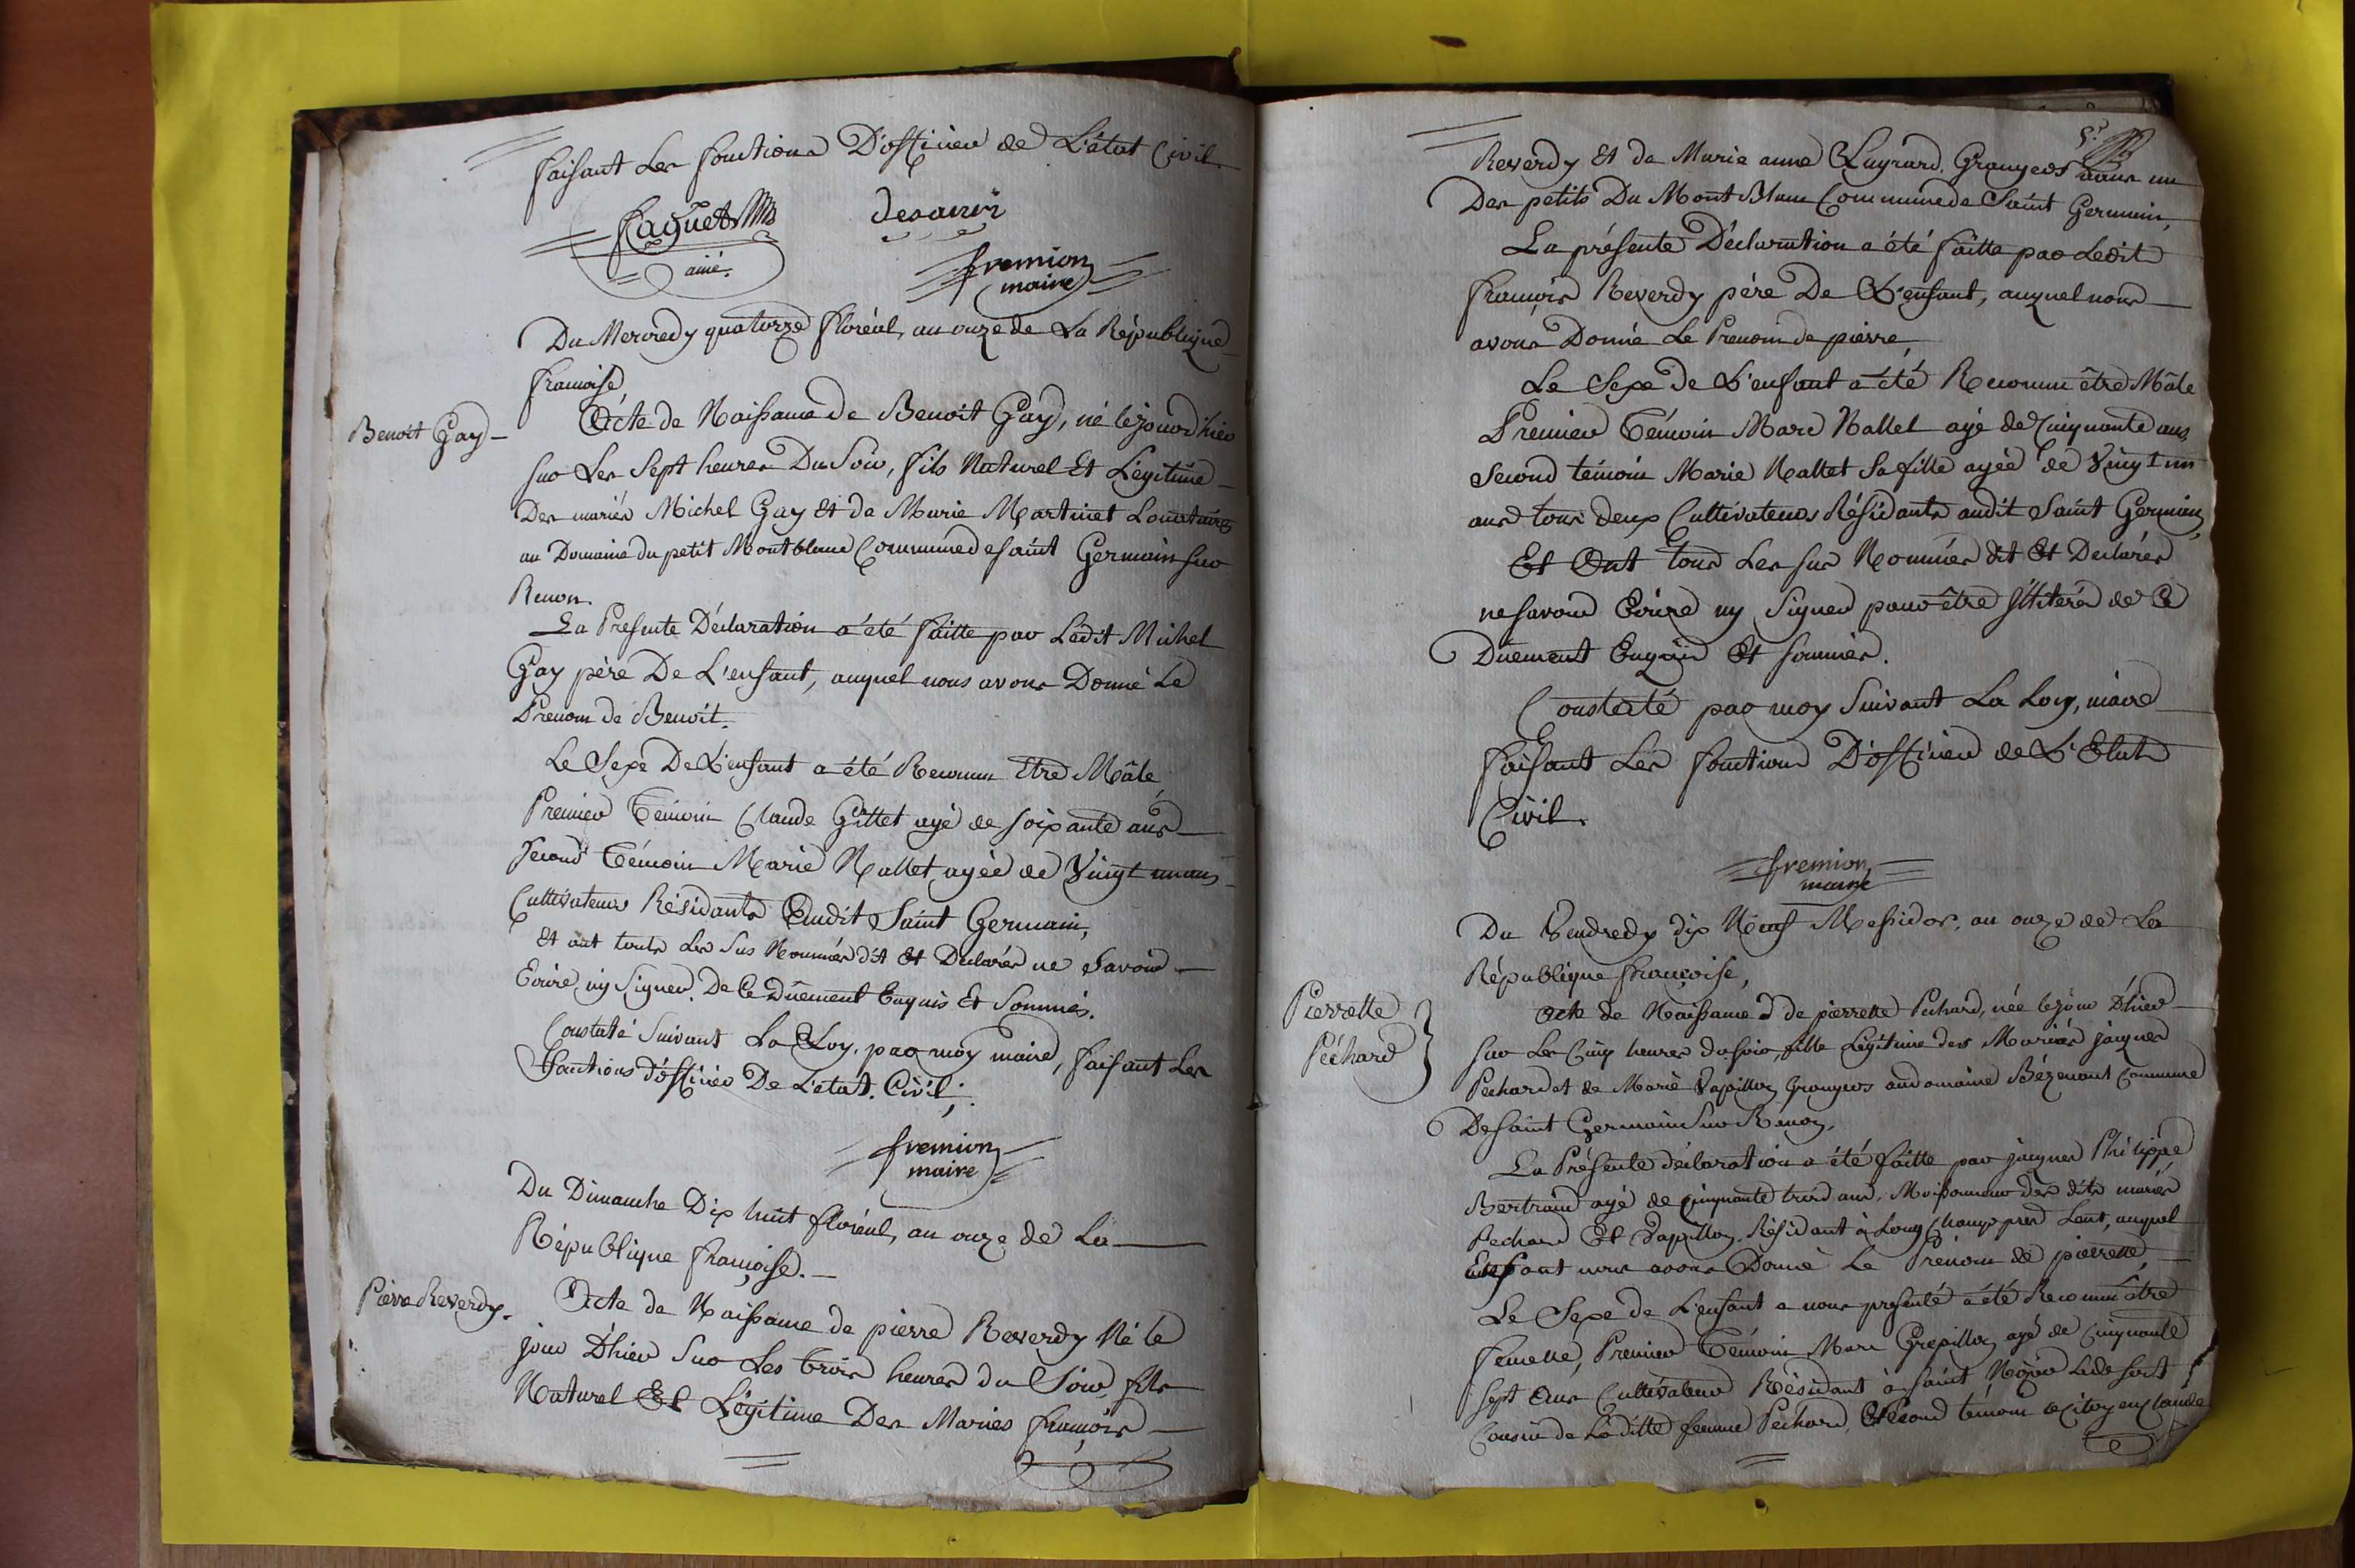 faisant Les fonctions D'officier de L'état Civil.
faguet
ainé.
desanin
fremion
maire
Du Mercredy quatorze floréal, an onze de La République
françoise
Benoit Gay
Acte de Naissance de Benoit Gay, né le jourd'hier
sur Les Sept heures Du Soir, fils Naturel Et Légitime
Des mariés Michel Gay Et de Marie Martinet Locataires
au Domaine du petit Montblanc Commune de saint Germain sur
Renon.
La Presente Déclaration a été faitte par Ledit Michel
Gay père De L'enfant, auquel nous avons Donné Le
Prenom de Benoit.
Le Sexe De L'enfant a été Reconnu Etre Mâle,
Premier Témoin Claude Gittet agé de soixante ans
second Témoin Marie Nallet, agée de Vingt un ans
Cultivateurs Résidants Audit Saint Germain,
Et ont touts Les Sus Nommés dit Et Declarés ne Savoir
Ecrire ny Signer. De Ce Düement Enquis Et Sommés.
Constaté Suivant La Loy, par moy maire, faisant Les
Fonctions d'officier De L'état. Civil;
fremion
maire
Du Dimanche Dix huit floréal, an onze de La
République françoise.
Pierre Reverdy.
Acte de Naissance de pierre Reverdy Né le
jour D'hier Sur Les trois heures du Soir, fils
Naturel Et Légitime Des Mariés françois
Reverdy Et de Marie anne Grangers dans un
Des petits Du Mont Blanc Commune de Saint Germain,
La présente Déclaration a été faitte par Ledit
françois Reverdy père De L'enfant, auquel nous
avons Donné Le Prenom de pierre,
Le Sexe de L'enfant a été Reconnu être Mâle
Premier Témoin Marc Nallet agé de Cinquante ans,
second témoin Marie Nallet Sa fille agée de Vingt un
ans tous deux Cultivateurs Résidants audit Saint Germain,
Et Ont tous Les sus Nommés dit Et Declarés
ne savoir Ecrire ny Signer pour être de Ce
Düement Enquis Et sommés.
Constaté par moy Suivant La Loy, maire
faisant Les fonctions D'officier de L'Etat
Civil.
fremion
maire
Du Vendredy dix Neuf Messidor, an onze de La
République françoise,
Pierrette
Péchard
Acte de Naissance de pierrette Pechard, née le jour D'hier
sur Les Cinq heures du soir, fille Légitime des Mariés jacques
Pechard et de Marie Papillon Grangers au domaine Bézenant Commune
De Saint Germain Sur Renon.
La Présente déclaration a été faitte par jacques Philippe
Bertrand agé de cinquante trois ans, Moissonneur des dits mariés
Pechard Et Papillon, Résidant à Long Champ pres Lent, auquel
Enfant nous avons Donné Le Prénom de pierrette,
Le Sexe de L'enfant a nous presenté a été Reconnu être
femelle, Premier Témoin Marc Grepillon agé de Cinquante
sept Ans Cultivateur Résidant à Saint
Cousin de Laditte femme Pechard, Et Second témoin le citoyen Claude